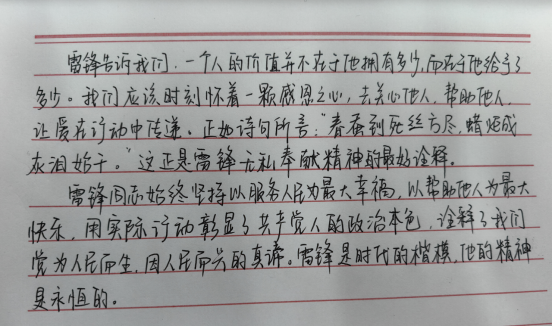 雷锋告诉我们，一个人的价值并不在于他拥有多少，而在于他给予了
多少。我们应该时刻怀着一颗感恩之心，去关心他人，帮助他人，
让爱在行动中传递。正如诗句所言："春蚕到死丝方尽，蜡炬成
灰泪始干。"这正是雷锋无私奉献精神的最好诠释。
雷锋同志始终坚持以服务人民为最大幸福，以帮助他人为最大
快乐，用实际行动彰显了共产党人的政治本色，诠释了我们
党为人民而生，因人民而兴的真谛。雷锋是时代的楷模，他的精神
是永恒的。